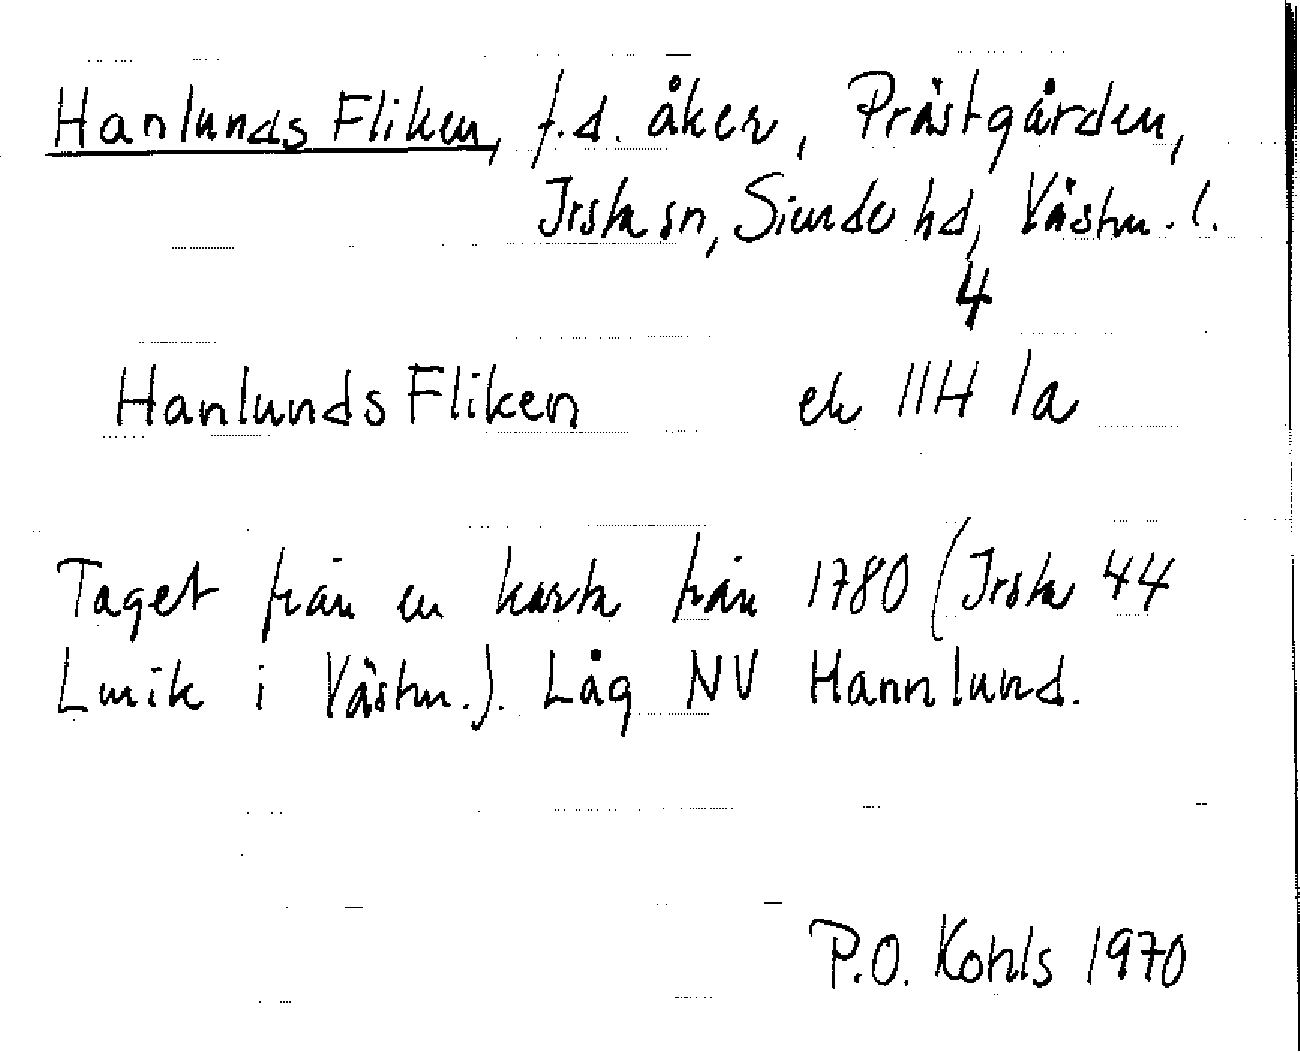 Hanlunds Fliken, f.d. åker, Prästgården,
Irsta sn, Siende hd, Västm. l.
4
Hanlunds Fliken ek 11H 1a
Taget från en karta från 1780 (Irsta 44
Lmik i Västm.). Låg NV Hannlund.
P.O. Kohls 1970